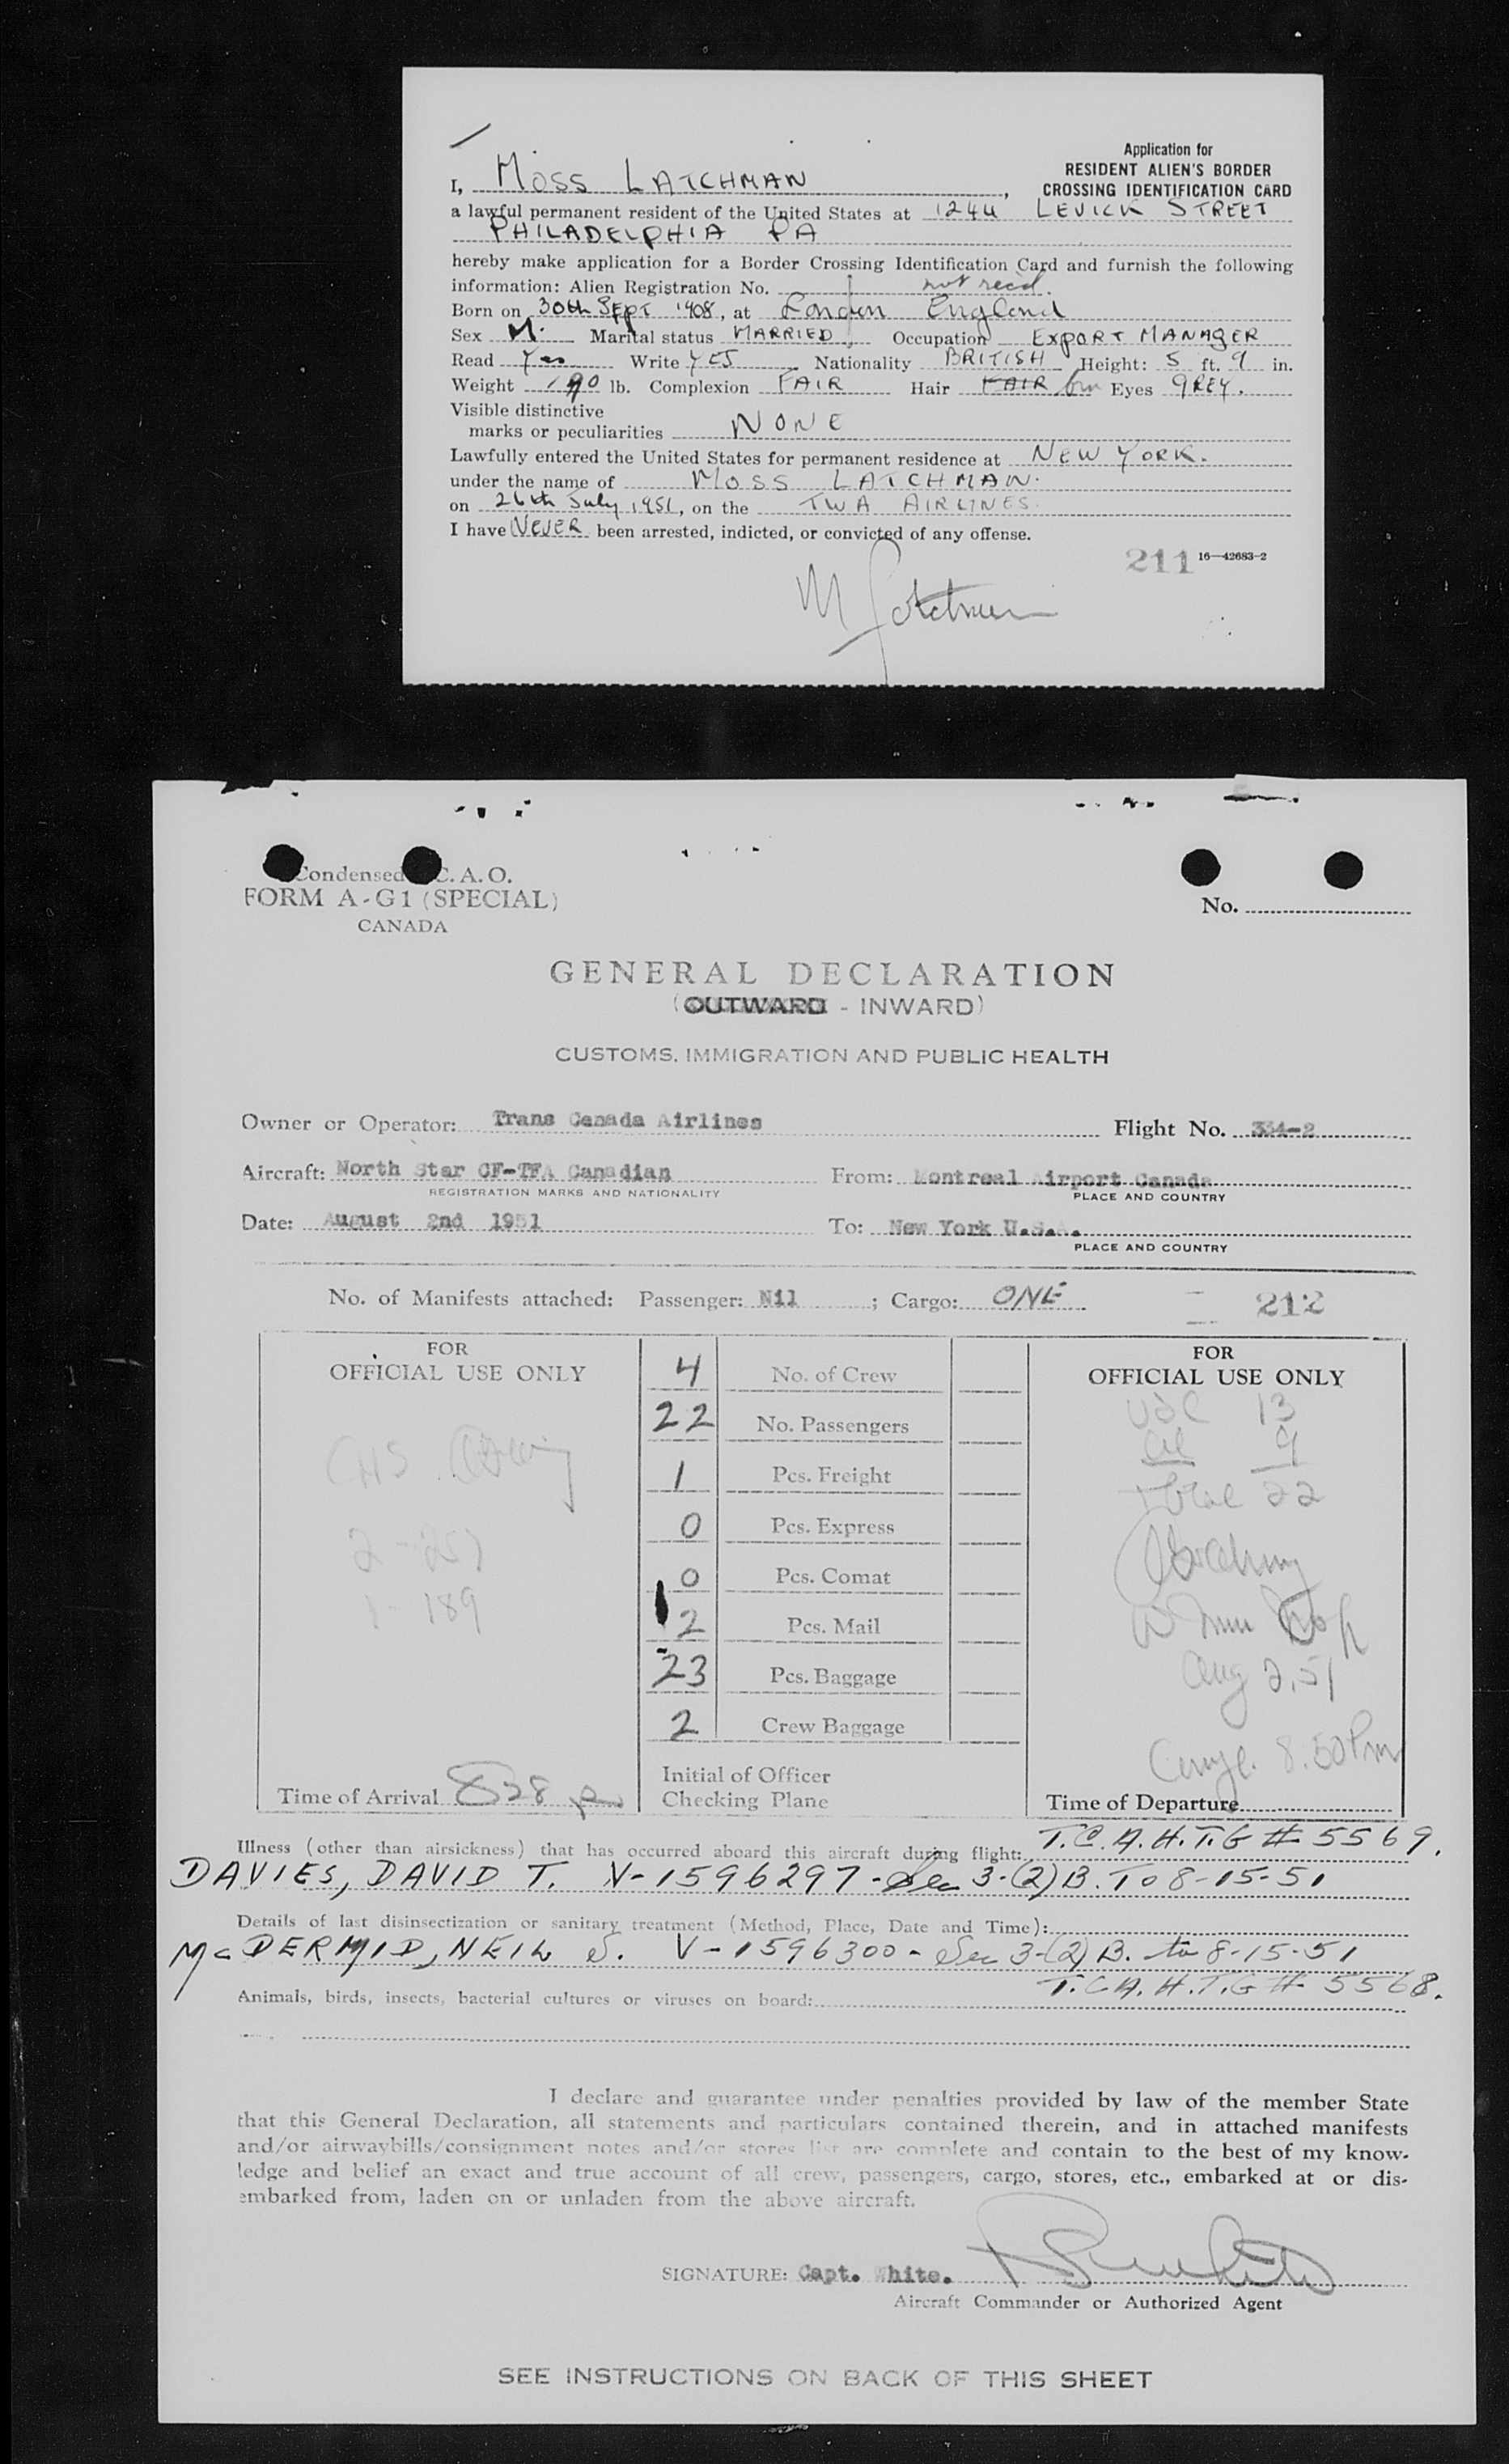 Application for
RESIDENT ALIEN'S BORDER
CROSSING IDENTIFICATION CARD
I, MOSS LATCHMAN,
a lawful permanent resident of the United States at 1244 LEVICK STREET
PHILADELPHIA PA
hereby make application for a Border Crossing Identification Card and furnish the following
information: Alien Registration No. not recd.
Born on 30th SEPT 1908, at London England
Sex M. Marital status MARRIED Occupation EXPORT MANAGER
Read Yes Write YES Nationality BRITISH Height: 5 ft. 9 in.
Weight 190 lb. Complexion FAIR Hair FAIR brn Eyes GREY.
Visible distinctive
marks or peculiarities NONE
Lawfully entered the United States for permanent residence at NEW YORK.
under the name of MOSS LATCHMAN.
on 26th July 1951, on the TWA AIRLINES.
I have NEVER been arrested, indicted, or convicted of any offense.
211 16—42683-2
M Latchman
Condensed C.A.O.
FORM A-G1 (SPECIAL)
CANADA
No.
GENERAL DECLARATION
(OUTWARD - INWARD)
CUSTOMS, IMMIGRATION AND PUBLIC HEALTH
Owner or Operator: Trans Canada Airlines Flight No. 334-2
Aircraft: North Star CF-TFA Canadian From: Montreal Airport Canada
REGISTRATION MARKS AND NATIONALITY PLACE AND COUNTRY
Date: August 2nd 1951 To: New York U.S.A.
PLACE AND COUNTRY
No. of Manifests attached: Passenger: Nil ; Cargo: ONE 212
FOR
OFFICIAL USE ONLY
CHS
2-257
1-189
Time of Arrival 828 p
4 No. of Crew
22 No. Passengers
1 Pcs. Freight
0 Pcs. Express
0 Pcs. Comat
2 Pcs. Mail
23 Pcs. Baggage
2 Crew Baggage
Initial of Officer
Checking Plane
FOR
OFFICIAL USE ONLY
USC 13
al 9
Total 22
Aug 2, 51
8.50 Pm
Time of Departure
Illness (other than airsickness) that has occurred aboard this aircraft during flight: T.C.A.H.T.G # 5569.
DAVIES, DAVID T. V-1596297 - Sec 3-(2) B. To 8-15-51
Details of last disinsectization or sanitary treatment (Method, Place, Date and Time):
McDERMID, NEIL S. V-1596300 - Sec 3-(2) B. to 8-15-51
T.C.A.H.T.G # 5568.
Animals, birds, insects, bacterial cultures or viruses on board:
I declare and guarantee under penalties provided by law of the member State
that this General Declaration, all statements and particulars contained therein, and in attached manifests
and/or airwaybills/consignment notes and/or stores list are complete and contain to the best of my know-
ledge and belief an exact and true account of all crew, passengers, cargo, stores, etc., embarked at or dis-
embarked from, laden on or unladen from the above aircraft.
SIGNATURE: Capt. White.
Aircraft Commander or Authorized Agent
SEE INSTRUCTIONS ON BACK OF THIS SHEET